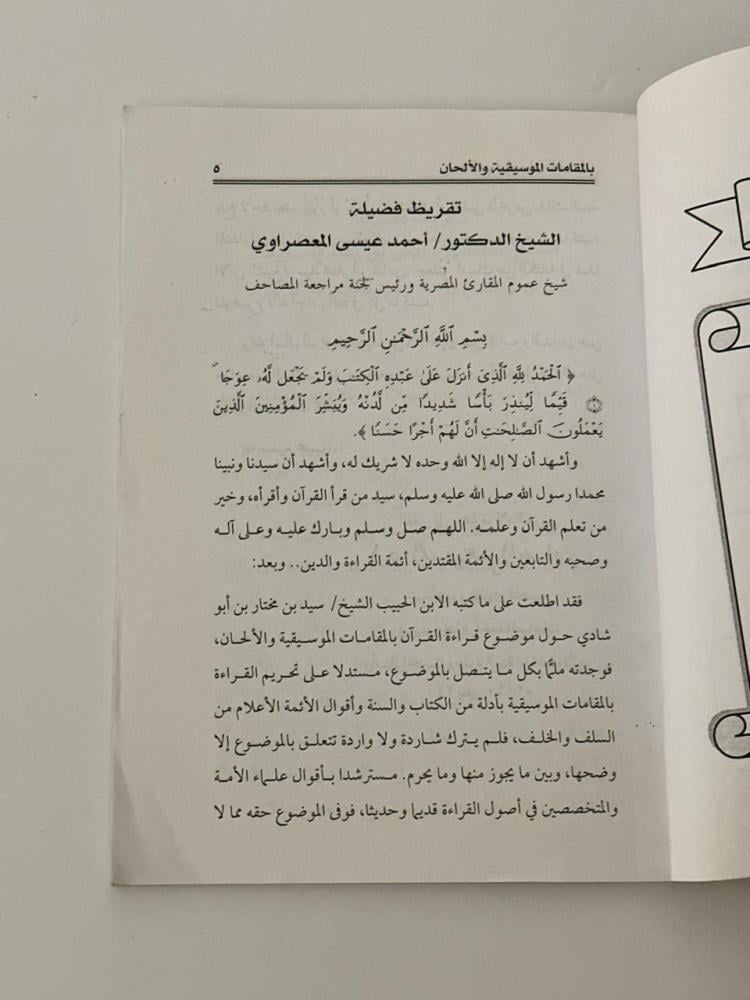 بالمقامات الموسيقية والألحان ٥
تقريظ فضيلة
الشيخ الدكتور/ أحمد عيسى المعصراوي
شيخ عموم المقارئ المصرية ورئيس لجنة مراجعة المصاحف
بِسْمِ ٱللَّهِ ٱلرَّحْمَٰنِ ٱلرَّحِيمِ
﴿ ٱلْحَمْدُ لِلَّهِ ٱلَّذِىٓ أَنزَلَ عَلَىٰ عَبْدِهِ ٱلْكِتَٰبَ وَلَمْ يَجْعَل لَّهُۥ عِوَجَا ۜ
١ قَيِّمًا لِّيُنذِرَ بَأْسًا شَدِيدًا مِّن لَّدُنْهُ وَيُبَشِّرَ ٱلْمُؤْمِنِينَ ٱلَّذِينَ
يَعْمَلُونَ ٱلصَّٰلِحَٰتِ أَنَّ لَهُمْ أَجْرًا حَسَنًا ﴾.
وأشهد أن لا إله إلا الله وحده لا شريك له، وأشهد أن سيدنا ونبينا
محمدا رسول الله صلى الله عليه وسلم، سيد من قرأ القرآن وأقرأه، وخير
من تعلم القرآن وعلمه. اللهم صل وسلم وبارك عليه وعلى آله
وصحبه والتابعين والأئمة المقتدين، أئمة القراءة والدين.. وبعد:
فقد اطلعت على ما كتبه الابن الحبيب الشيخ/ سيد بن مختار بن أبو
شادي حول موضوع قراءة القرآن بالمقامات الموسيقية والألحان،
فوجدته ملمًّا بكل ما يتصل بالموضوع، مستدلا على تحريم القراءة
بالمقامات الموسيقية بأدلة من الكتاب والسنة وأقوال الأئمة الأعلام من
السلف والخلف، فلم يترك شاردة ولا واردة تتعلق بالموضوع إلا
وضحها، وبين ما يجوز منها وما يحرم. مسترشدا بأقوال علماء الأمة
والمتخصصين في أصول القراءة قديما وحديثا، فوفى الموضوع حقه مما لا